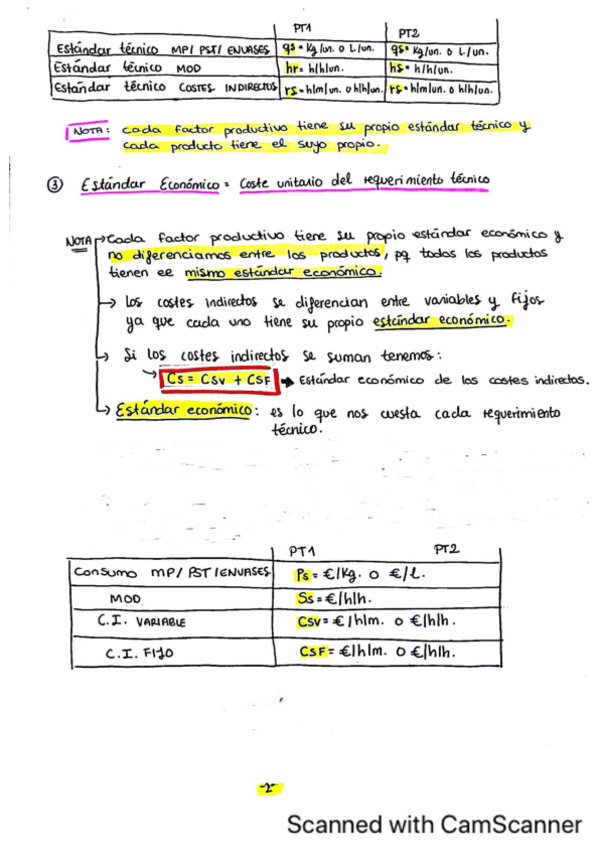 PT1 PT2
Estándar técnico MP/ PST/ ENVASES qs = Kg/un. o L/un. qs = Kg/un. o L/un.
Estándar técnico MOD hr = h/h/un. hs = h/h/un.
Estandar técnico COSTES INDIRECTOS rs = h/m/un. o h/h/un. rs = h/m/un. o h/h/un.
NOTA: cada factor productivo tiene su propio estándar técnico y
cada producto tiene el suyo propio.
③ Estándar Económico = Coste unitario del requerimiento técnico
NOTA → Cada factor productivo tiene su propio estándar económico y
no diferenciamos entre los productos, pq todos los productos
tienen ee mismo estándar económico.
→ Los costes indirectos se diferencian entre variables y fijos
ya que cada uno tiene su propio estándar económico.
→ Si los costes indirectos se suman tenemos:
↳ Cs = Csv + CSF → Estándar económico de los costes indirectos.
↳ Estándar económico: es lo que nos cuesta cada requerimiento
técnico.
PT1 PT2
Consumo MP/ PST/ENVASES Ps = €/Kg. o €/L.
MOD Ss = €/h/h.
C.I. VARIABLE CSV = €/h/m. o €/h/h.
C.I. FIJO CSF = €/h/m. o €/h/h.
-2-
Scanned with CamScanner